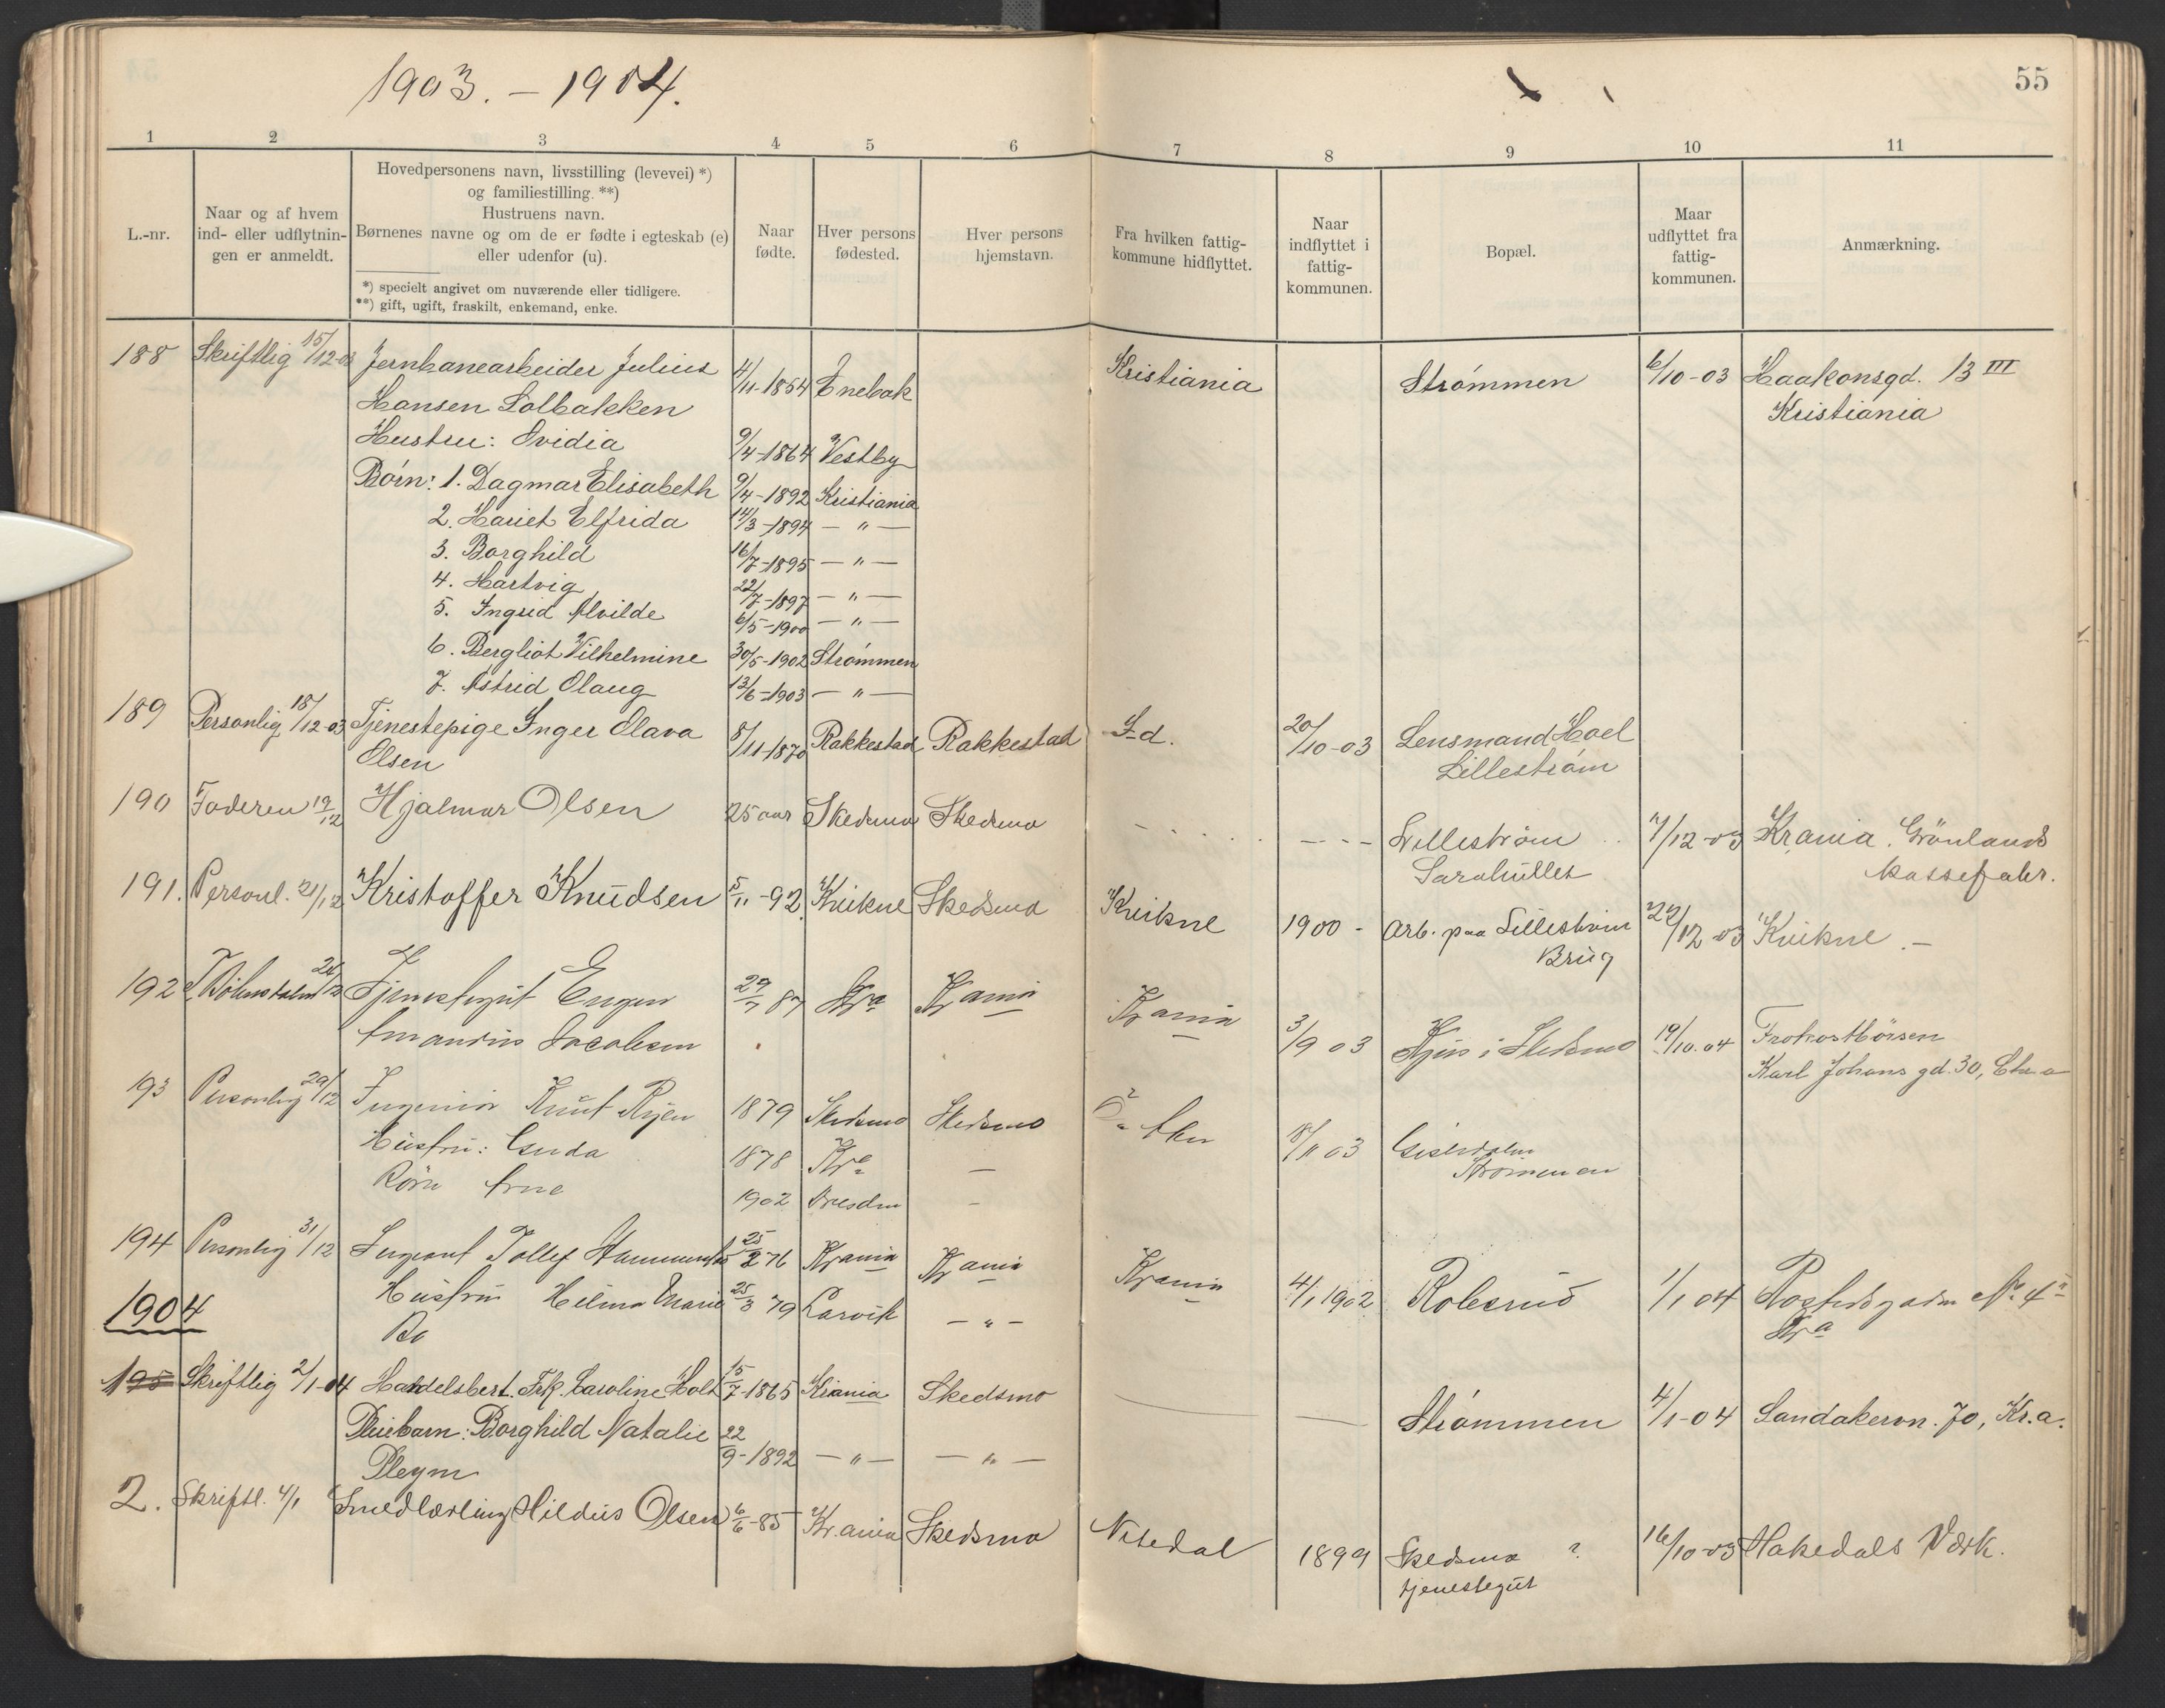 1903. – 1904.
55
1 2 3 4 5 6 7 8 9 10 11
L.-nr.
Naar og af hvem
ind- eller udflytnin-
gen er anmeldt.
Hovedpersonens navn, livsstilling (levevei) *)
og familiestilling. **)
Hustruens navn.
Børnenes navne og om de er fødte i egteskab (e)
eller udenfor (u).
*) specielt angivet om nuværende eller tidligere.
**) gift, ugift, fraskilt, enkemand, enke.
Naar
fødte.
Hver persons
fødested.
Hver persons
hjemstavn.
Fra hvilken fattig-
kommune hidflyttet.
Naar
indflyttet i
fattig-
kommunen.
Bopæl.
Maar
udflyttet fra
fattig-
kommunen.
Anmærkning.
188 Skriftlig 15/12-03 Jernbanearbeider Julius 4/11-1854 Enebak Kristiania Strømmen 6/10-03 Haakonsgd. 13 III
Hansen Solbakken Kristiania
Hustru: Ovidia 9/4-1864 Vestby
Børn: 1. Dagmar Elisabeth 9/4-1892 Kristiania
2. Hariet Elfrida 14/3-1894 — " —
3. Borghild 16/7-1895 — " —
4. Hartvig 22/7-1897 — " —
5. Ingrid Alvilde 6/5-1900 — " —
6. Bergliot Vilhelmine 30/5-1902 Strømmen
7. Astrid Olaug 13/6-1903 — " —
189 Personlig 18/12-03 Tjenestepige Inger Olava 8/11-1870 Rakkestad Rakkestad I-d. 20/10-03 Lensmand Hoel
Olsen Lillestrøm
190 Faderen 19/12 Hjalmar Olsen 25 aar Skedsmo Skedsmo - - - - Lillestrøm 7/12-03 Krania. Grönlands
Sarahullet kassefabr.
191. Personl. 21/12 Kristoffer Knudsen 5/11-92 Kvikne Skedsmo Kvikne 1900 - Arb. paa Lillestrøm 22/12-03 Kvikne. –
Brug
192 24/12 Tjenestegut Eugen 29/7 87 Kra Krania Krania 3/9 03 i Skedsmo 19/10.04 Frokostbörsen
Amandus Jacobsen Karl Johans gd. 30,
193 Personlig 29/12 Ingeniør Knut Ryen 1879 Skedsmo Skedsmo Aker 18/11 03
Hustru: 1878 Kra — Strømmen
Børn Arne 1902 Dresden –
194 Personlig 31/12 Sergeant Tollef 25/2 76 Krania Krania Krania 4/1 1902 Rolesrud 1/1 04 No 4
Hustru Hilma Marie 25/3 79 Larvik — " — Kra
1904 Bo
195 Skriftlig 2/1-04 Handelsbest. Frk. Caroline Holt 15/7-1865 Kr.ania Skedsmo — — Strømmen 4/1-04 Sandakervn. 70, Kr.a.
Pleiebarn: Borghild Natalie 22/9-1892 — " — — " —
Pleym
2. Skriftl. 4/1 Smedlærling Hildus Olsen 6/6-85 Kr.ania Skedsmo Nitedal 1899 Skedsmo ? 16/10-03 Hakedals Værk.
tjenestegut